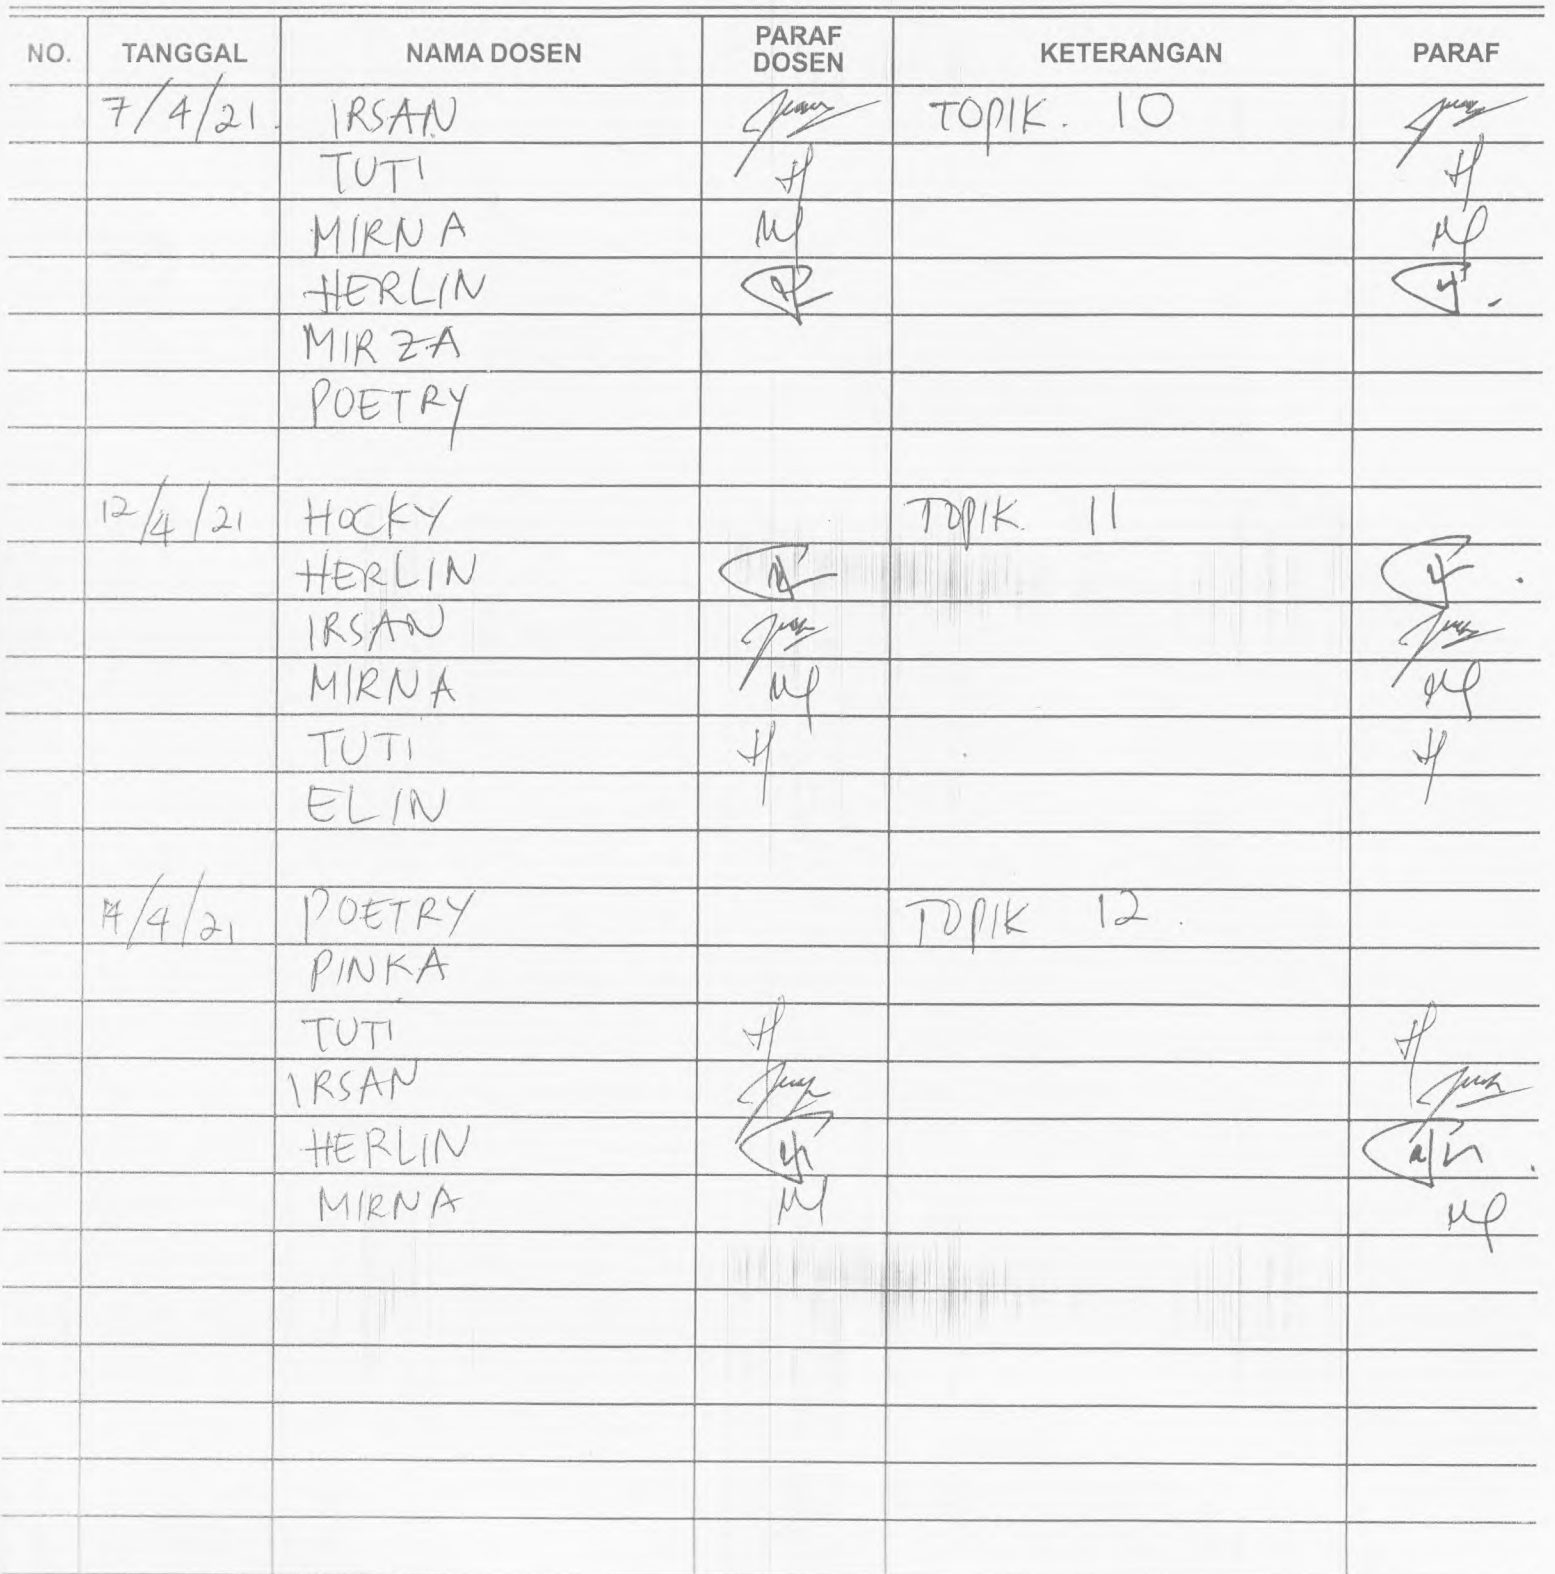 NO. TANGGAL NAMA DOSEN PARAF DOSEN KETERANGAN PARAF
7/4/21. IRSAN TOPIK. 10
TUTI
MIRNA
HERLIN
MIRZA
POETRY
12/4/21 HOCKY TOPIK. 11
HERLIN
IRSAN
MIRNA
TUTI
ELIN
/4/21 POETRY TOPIK 12.
PINKA
TUTI
IRSAN
HERLIN
MIRNA